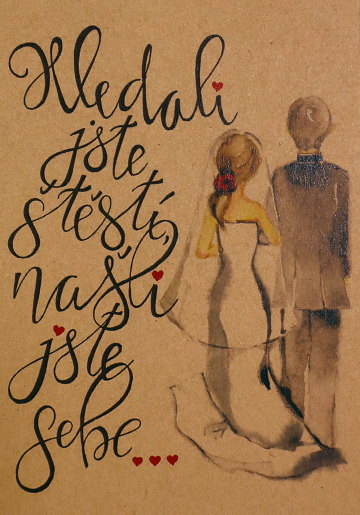 Hledali
jste
štěstí,
našli
jste
sebe...